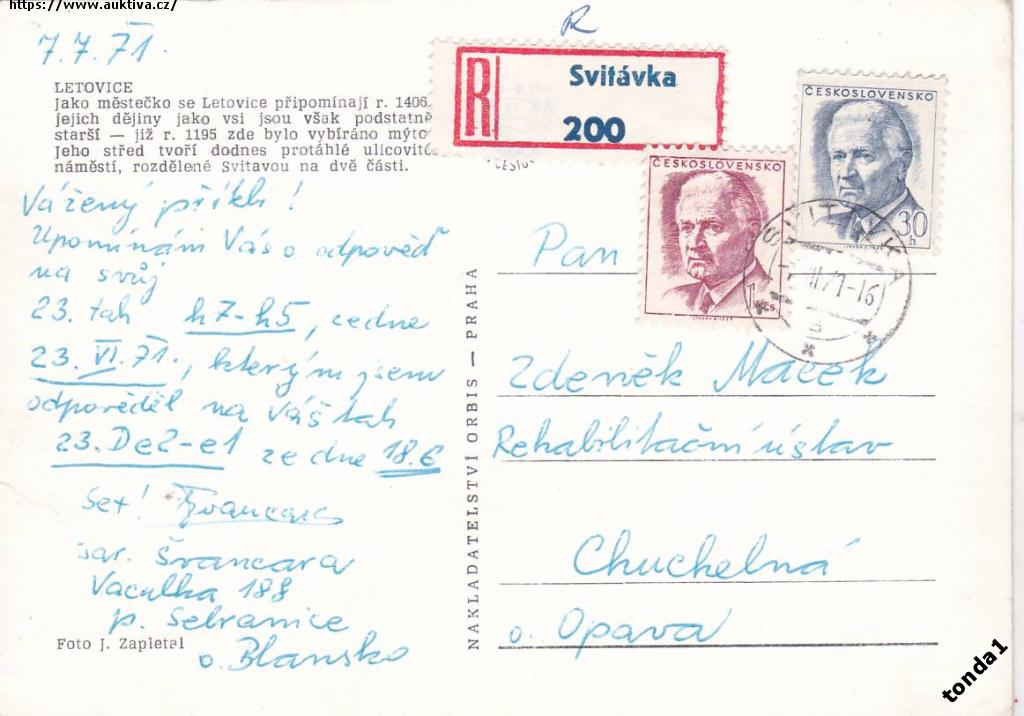 https://www.auktiva.cz/
R
7.7.71.
LETOVICE
Jako městečko se Letovice připomínají r. 1406.
jejich dějiny jako vsi jsou však podstatně
starší — již r. 1195 zde bylo vybíráno mýto
Jeho střed tvoří dodnes protáhlé ulicovité
náměstí, rozdělené Svitavou na dvě části.
R
Svitávka
200
ČESKOSLOVENSKO
30
h
ČESKOSLOVENSKO
1 Kčs
SVITÁVKA
Vážený příteli!
Upomínám Vás o odpověď
na svůj
23. tah h7-h5, ze dne
23.VI.71., kterým jsem
odpověděl na Váš tah
23. De2-e1 ze dne 18.6
Švancara
Jar. Švancara
188
p. Sebranice
o. Blansko
Foto J. Zapletal
NAKLADATELSTVÍ ORBIS — PRAHA
Pan
Zdeněk Macek
Rehabilitační ústav
Chuchelná
o. Opava
tonda1